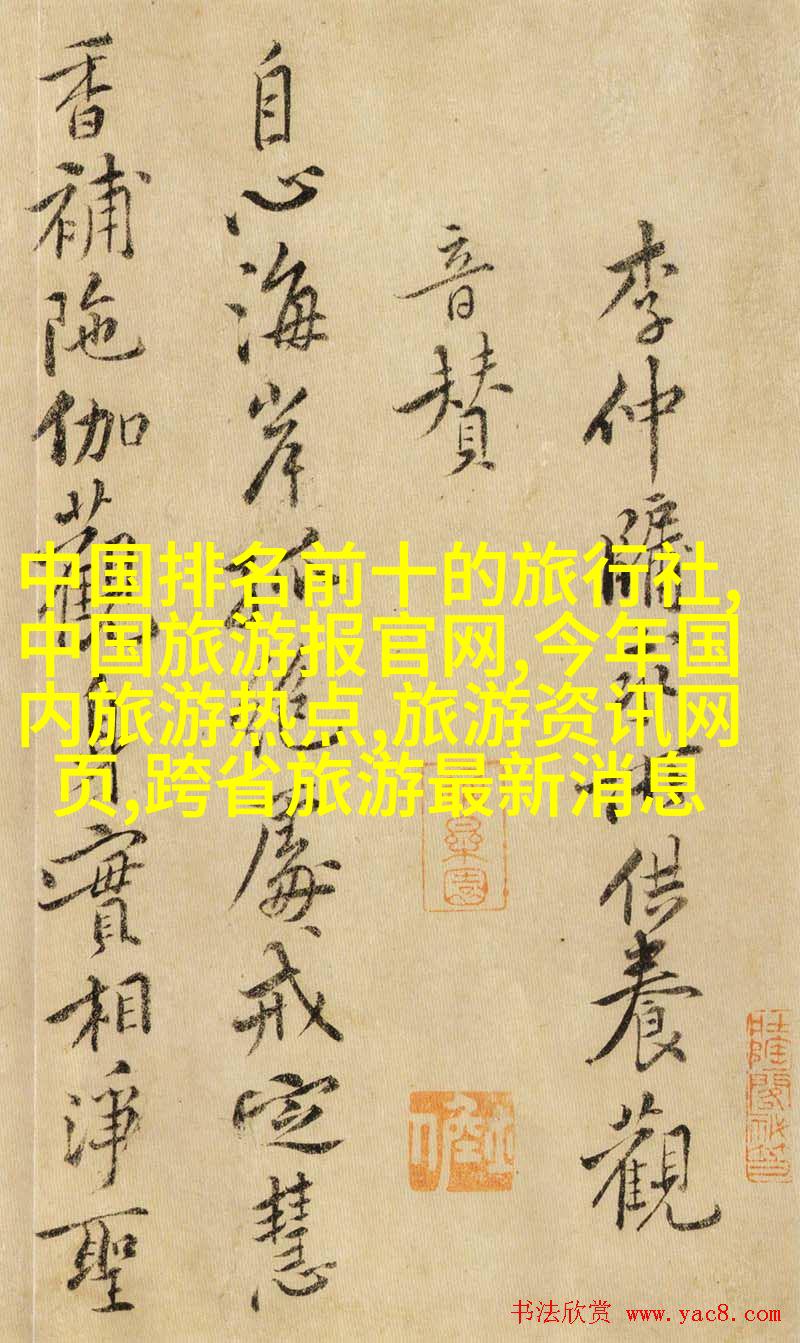 李仲牖供養觀
音賛
自心海岸孤絕處戒定慧
香補陁伽觀身實相淨聖
中国排名前十的旅行社,
中国旅游报官网,今年国
内旅游热点,旅游资讯网
页,跨省旅游最新消息
书法欣赏 www.yac8.com